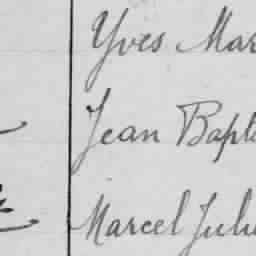 Yves Mar
Jean Bapt
Marcel Juli